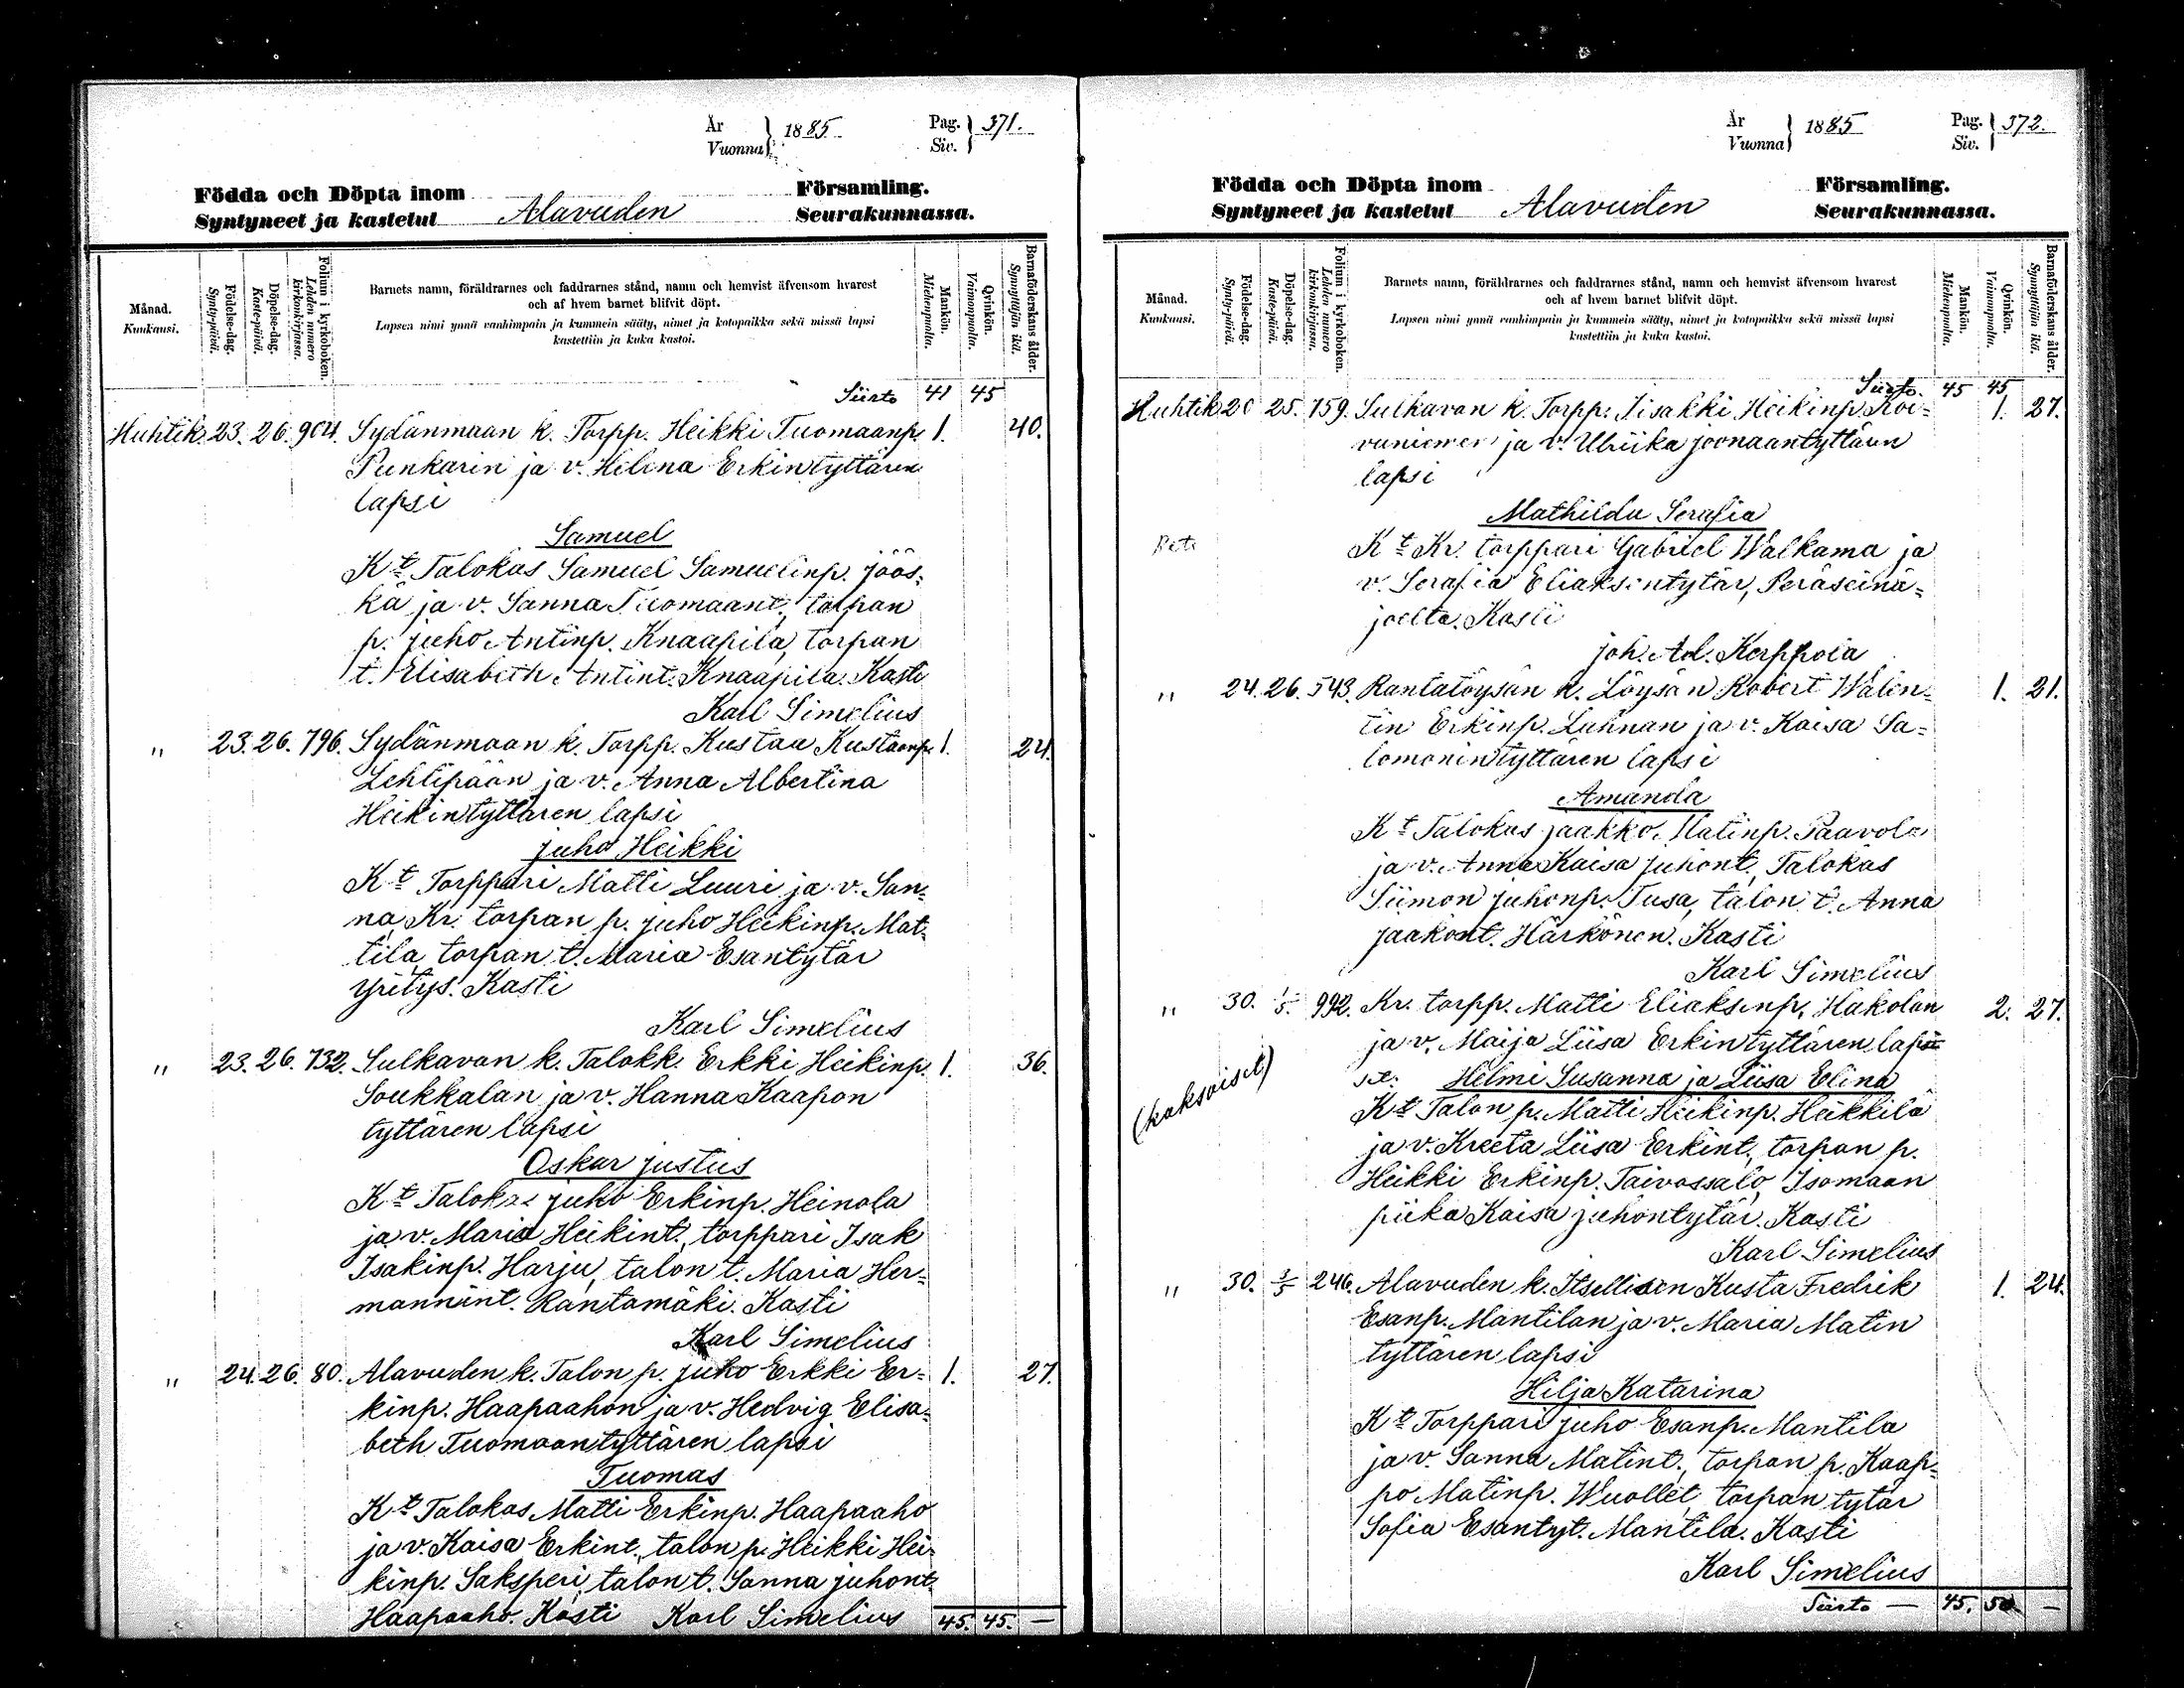 År
Vuonna } 1885
Pag.
Siv. } 371.
Födda och Döpta inom Församling.
Syntyneet ja kastetut Alavuden Seurakunnassa.
Månad.
Kuukausi.
Födelse-dag.
Synty-päivä.
Döpelse-dag.
Kaste-päivä.
Folium i kyrkoboken.
Lehden numero kirkonkirjassa.
Barnets namn, föräldrarnes och faddrarnes stånd, namn och hemvist äfvensom hvarest
och af hvem barnet blifvit döpt.
Lapsen nimi ynnä vanhimpain ja kummein sääty, nimet ja kotopaikka sekä missä lapsi
kastettiin ja kuka kastoi.
Mankön.
Miehenpuolia.
Qvinkön.
Vaimonpuolia.
Barnaföderskans ålder.
Synnyttäjän ikä.
Siirto 41 45
Huhtik. 23. 26. 904. Sydänmaan k. Torpp. Heikki Tuomaanp. 1. 40.
Punkarin ja v. Helena Erkintyttären
lapsi
Samuel
Kt Talokas Samuel Samuelinp. Jöös-
kä ja v. Sanna Tuomaant., torpan
p. Juho Antinp. Knaapila, torpan
t. Elisabeth Antint. Knaapila. Kasti
Karl Simelius
" 23. 26. 796. Sydänmaan k. Torpp. Kustaa Kustaanp. 1. 24.
Lehtipään ja v. Anna Albertina
Heikintyttären lapsi
Juho Heikki
Kt Torppari Matti Luuri ja v. San-
na, Kr. torpan p. Juho Heikinp. Mat-
tila torpan t. Maria Esantytär
Yritys. Kasti
Karl Simelius
" 23. 26. 732. Sulkavan k. Talokk. Erkki Heikinp. 1. 36.
Soukkalan ja v. Hanna Kaapon
tyttären lapsi
Oskar Justus
Kt Talokas Juho Erkinp. Heinola
ja v. Maria Heikint., torppari Isak
Isakinp. Harju, talon t. Maria Her-
mannint. Rantamäki. Kasti
Karl Simelius
" 24. 26. 80. Alavuden k. Talon p. Juho Erkki Er- 1. 27.
kinp. Haapaahon ja v. Hedvig Elisa-
beth Tuomaantyttären lapsi
Tuomas
Kt Talokas Matti Erkinp. Haapaaho
ja v. Kaisa Erkint., talon p. Heikki Hei-
kinp. Saksperi, talon t. Sanna Juhont.
Haapaaho. Kasti Karl Simelius 45. 45. —
År
Vuonna } 1885
Pag.
Siv. } 372.
Födda och Döpta inom Församling.
Syntyneet ja kastetut Alavuden Seurakunnassa.
Månad.
Kuukausi.
Födelse-dag.
Synty-päivä.
Döpelse-dag.
Kaste-päivä.
Folium i kyrkoboken.
Lehden numero kirkonkirjassa.
Barnets namn, föräldrarnes och faddrarnes stånd, namn och hemvist äfvensom hvarest
och af hvem barnet blifvit döpt.
Lapsen nimi ynnä vanhimpain ja kummein sääty, nimet ja kotopaikka sekä missä lapsi
kastettiin ja kuka kastoi.
Mankön.
Miehenpuolia.
Qvinkön.
Vaimonpuolia.
Barnaföderskans ålder.
Synnyttäjän ikä.
Siirto. 45 45
Huhtik 20 25. 759. Sulkavan k. Torpp. Iisakki Heikinp. Koi- 1. 27.
vuniemen ja v. Ulriika Joonaantyttären
lapsi
Mathilda Serafia
Kt Kr. torppari Gabriel Walkama ja
v. Serafia Eliaksentytär, Peräseinä-
joelta. Kasti
Joh. Ad. Kerppola
" 24. 26. 543. Rantatöysän k. Löysän Robert Walen- 1. 21.
tin Erkinp. Luhnan ja v. Kaisa Sa-
lomonintyttären lapsi
Amanda
Kt Talokas Jaakko Matinp. Paavola
ja v. Anna Kaisa Juhont., Talokas
Siimon Juhonp. Tusa, talon t. Anna
Jaakont. Härkönen. Kasti
Karl Simelius
" 30. 1/5. 992. Kr. torpp. Matti Eliaksenp. Hakolan 2. 27.
ja v. Maija Liisa Erkintyttären lap-
(kaksoiset)
set: Helmi Susanna ja Liisa Elina
Kt Talon p. Matti Heikinp. Heikkilä
ja v. Kreeta Liisa Erkint., torpan p.
Heikki Erkinp. Taivassalo, Isomaan
piika Kaisa Juhontytär. Kasti
Karl Simelius
" 30. 3/5 246. Alavuden k. Itsellisen Kusta Fredrik 1. 24.
Esanp. Mantilan ja v. Maria Matin
tyttären lapsi
Hilja Katarina
Kt Torppari Juho Esanp. Mantila
ja v. Sanna Matint., torpan p. Kaap-
po Matinp. Wuollet, torpan tytär
Sofia Esantyt. Mantila. Kasti
Karl Simelius
Siirto — 45. 50 —